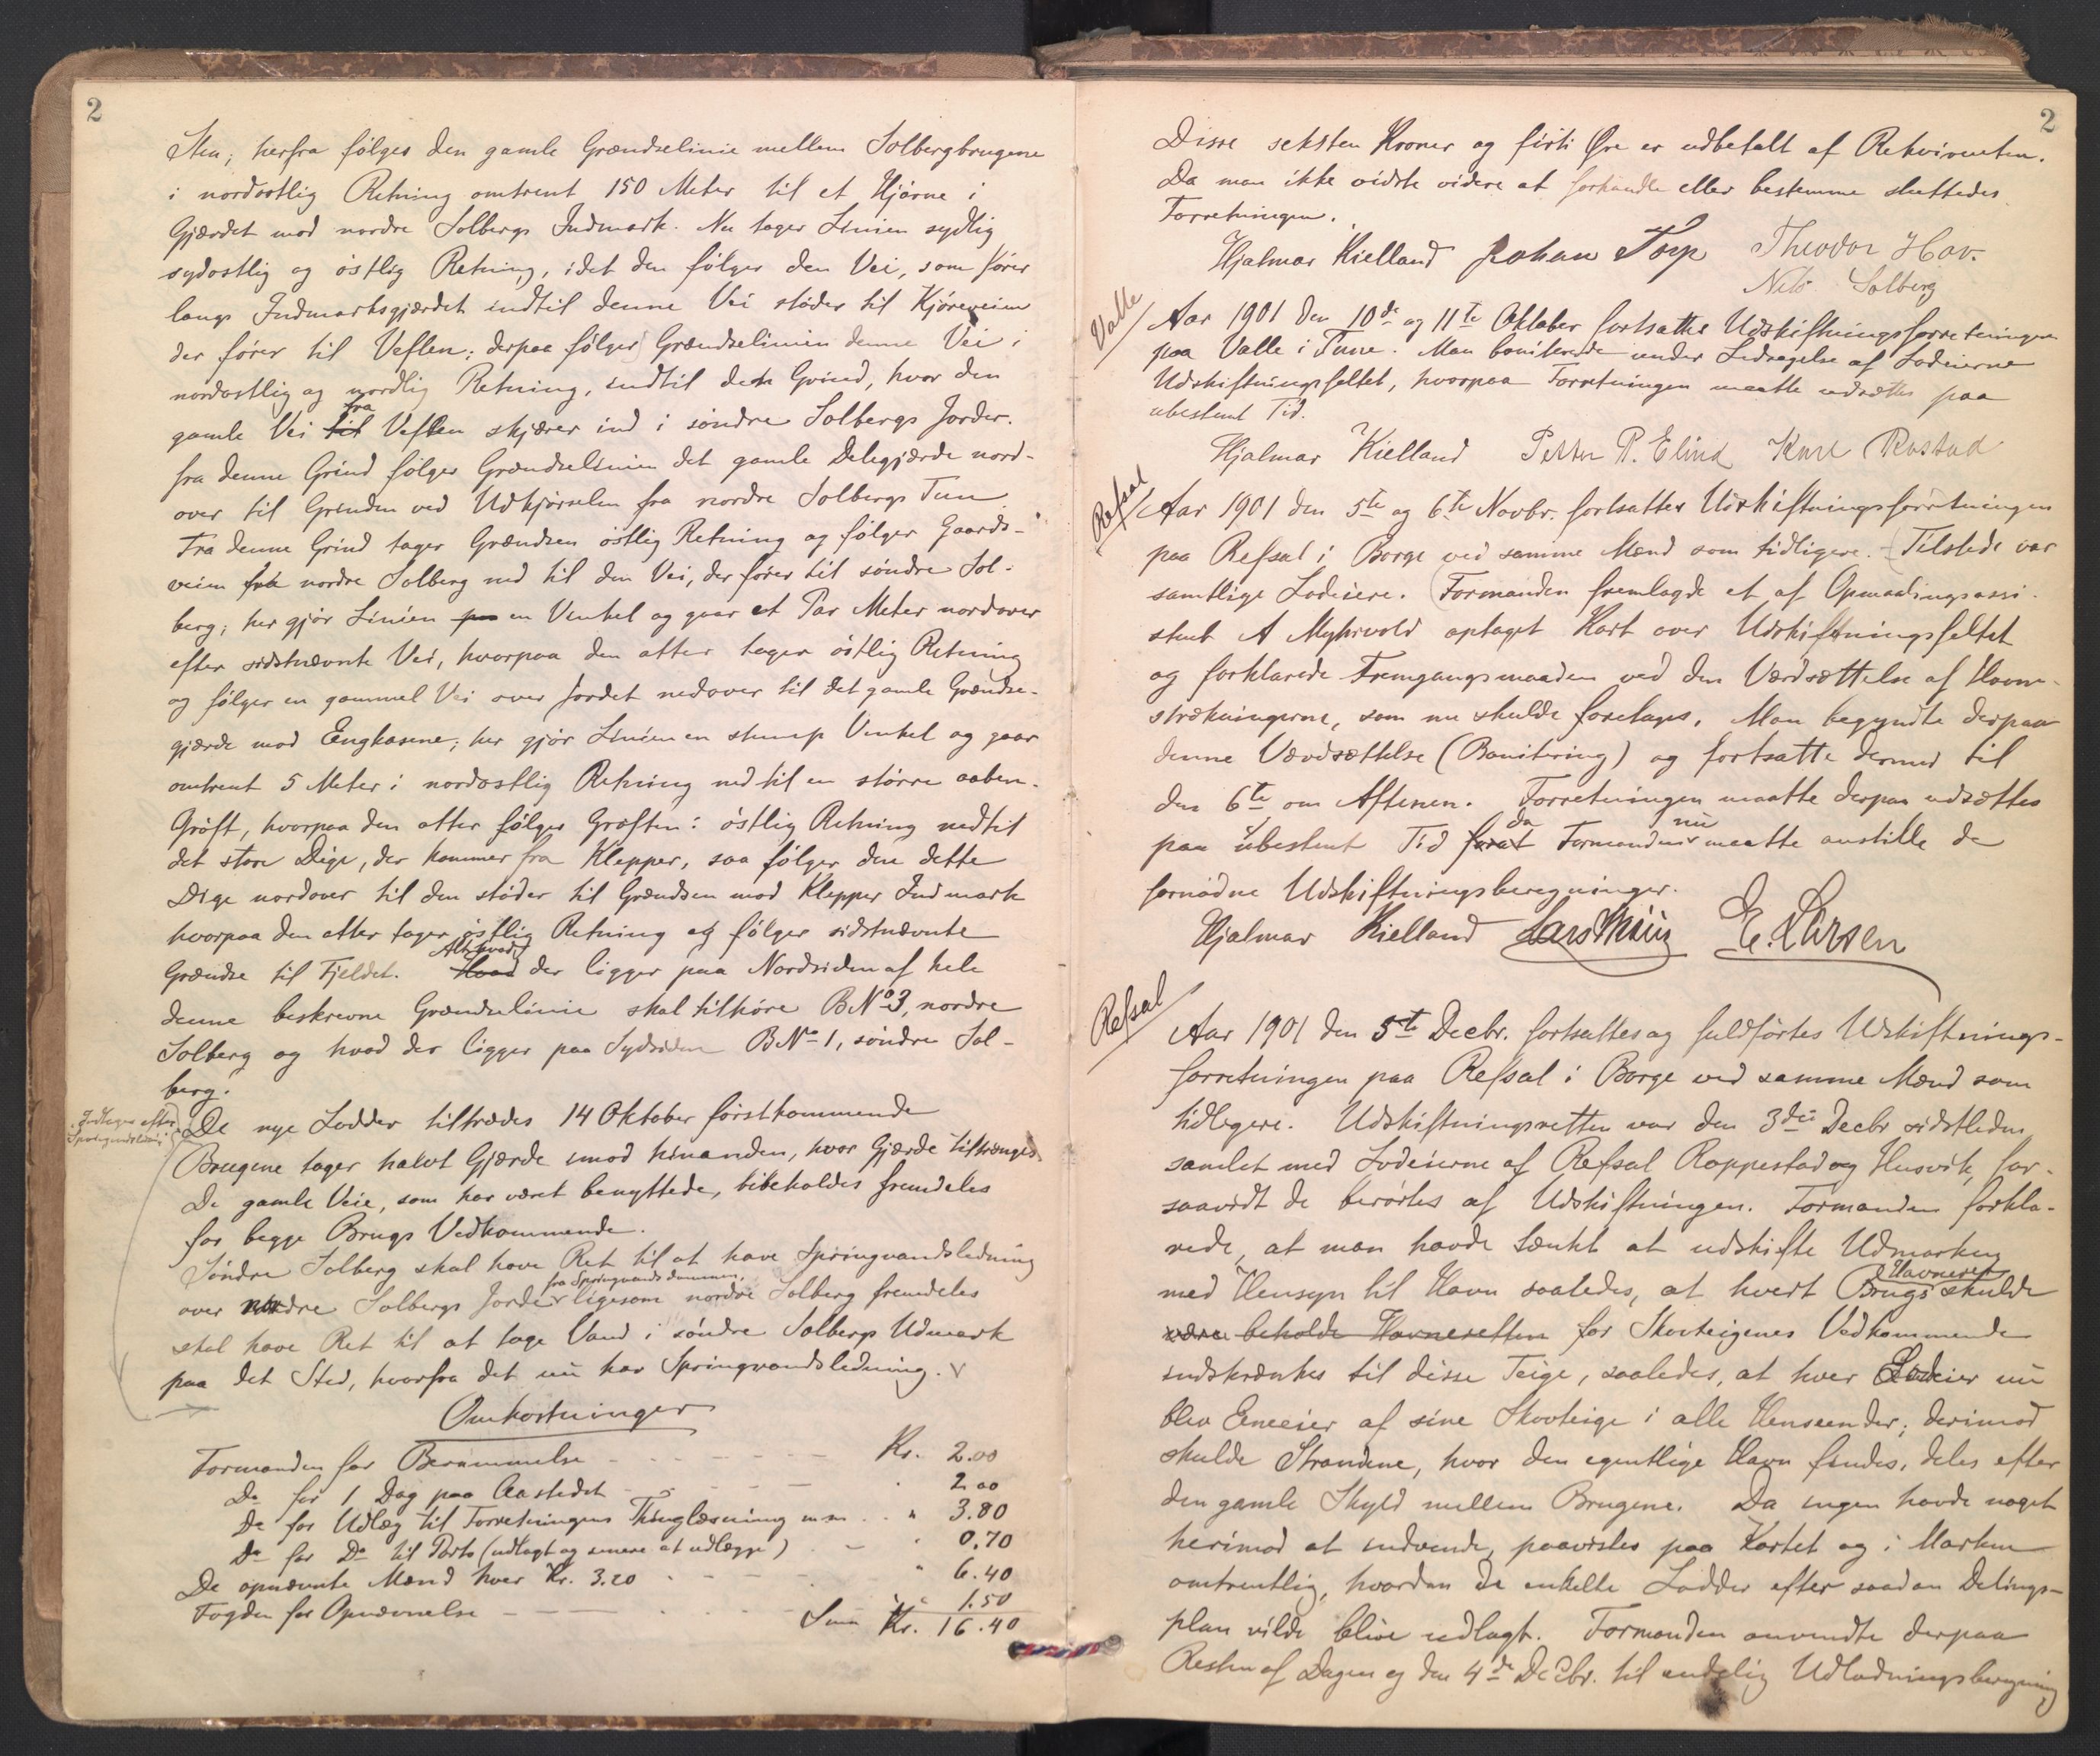 2
Sten; herfra følges den gamle Grændselinie mellem Solbergbrugene
i nordostlig Retning omtrent 150 Meter til et Hjørne i
Gjærdet mod nordre Solbergs Indmark. Nu tager Linien sydlig
sydostlig og østlig Retning, idet den følger den Vei, som fører
langs Indmarksgjærdet indtil denne Vei støder til Kjøreveien
der fører til Veflen; derpaa følger Grændselinien denne Vei i
nordostlig og nordlig Retning, indtil den Grind, hvor den
gamle Vei til fra Veflen skjærer ind i søndre Solbergs Jorder.
fra denne Grind følger Grændselinien det gamle Delegjærde nord-
over til Grinden ved Udkjørselen fra nordre Solbergs Tun
Fra denne Grind tager Grændsen østlig Retning og følger Gaards-
veien fra nordre Solberg ned til den Vei, der fører til søndre Sol-
berg; her gjør Linien paa en Vinkel og gaar et Par Meter nordover
efter sidstnævnte Vei, hvorpaa den atter tager østlig Retning
og følger en gammel Vei over Jordet nedover til det gamle Grændse-
gjærde mod Engkasene; her gjør Linien en stump Vinkel og gaar
omtrent 5 Meter i nordostlig Retning ned til en større aaben
Grøft, hvorpaa den atter følger Grøften i østlig Retning nedtil
det store Dige, der kommer fra Klepper, saa følger den dette
Dige nordover til den støder til Grændsen mod Klepper Indmark
hvorpaa den atter tager østlig Retning og følger sidstnævnte
Grændse til Fjeldet. Hvad Alt hvad der ligger paa Nordsiden af hele
denne beskrevne Grændselinie skal tilhøre B.No 3, nordre
Solberg og hvad der ligger paa Sydsiden B.No 1, søndre Sol-
berg.
De nye Lodder tiltrædes 14 Oktober førstkommende
Brugene tager halvt Gjærde imod hinanden, hvor Gjærde tiltrænges
De gamle Veie, som har været benyttede, bibeholdes fremdeles
for begge Brugs Vedkommende.
Søndre Solberg skal have Ret til at have Springvandsledning
over nordre Solbergs Jorder fra Springvandsdammen, ligesom nordre Solberg fremdeles
skal have Ret til at tage Vand i søndre Solbergs Udmark
paa det Sted, hvorfra det nu har Springvandsledning.
Omkostninger
Formanden for Berammelse Kr. 2.00
Do for 1 Dag paa Aastedet " 2.00
Do for Udlæg til Forretningens Thinglæsning m.m. " 3.80
Do for Do til Porto (udlagt og senere at udlægge) " 0.70
De opnævnte Mænd hver Kr. 3.20 " 6.40
Fogden for Opnævnelse " 1.50
Sum Kr. 16.40
2
Disse seksten Kroner og firti Øre er udbetalt af Rekvirenten.
Da man ikke vidste videre at forhandle eller bestemme sluttedes
Forretningen.
Hjalmar Kielland Johan Torp Theodor Hov.
Nils Solberg
Valle
Aar 1901 den 10de og 11te Oktober fortsattes Udskiftningsforretningen
paa Valle i Tune. Man boniterede under Ledsagelse af Lodeierne
Udskiftningsfeltet, hvorpaa Forretningen maatte udsættes paa
ubestemt Tid.
Hjalmar Kielland Petter P. Elind Karl Rostad
Refsal
Aar 1901 den 5te og 6te Novbr. fortsattes Udskiftningsforretningen
paa Refsal i Borge ved samme Mænd som tidligere. Tilstede var
samtlige Lodeiere. Formanden fremlagde et af Opmaalingsassi-
stent A Myhrvold optaget Kart over Udskiftningsfeltet
og forklarede Fremgangsmaaden ved den Værdsættelse af Havne-
strækningerne, som nu skulde foretages. Man begyndte derpaa
denne Værdsættelse (Bonitering) og fortsatte dermed til
den 6te om Aftenen. Forretningen maatte derpaa udsættes
paa ubestemt Tid forat da Formanden nu maatte anstille de
fornødne Udskiftningsberegninger.
Hjalmar Kielland Lars E. Larsen
Refsal
Aar 1901 den 5te Decbr. fortsattes og fuldførtes Udskiftnings-
forretningen paa Refsal i Borge ved samme Mænd som
tidligere. Udskiftningsretten var den 3die Decbr sidstleden
samlet med Lodeierne af Refsal Roppestad og Husvik, for-
saavidt de berørtes af Udskiftningen. Formanden forkla-
rede, at man havde tænkt at udskifte Udmarken
med Hensyn til Havn saaledes, at hvert Brugs Havneret skulde
være beholde Havneretten for Skovteigenes Vedkommende
indskrænkes til disse Teige, saaledes, at hver Lodeier nu
blev Eneeier af sine Skovteige i alle Henseender; derimod
skulde Strandene, hvor den egentlige Havn findes, deles efter
den gamle Skyld mellem Brugene. Da ingen havde noget
herimod at indvende, paavistes paa Kartet og i Marken
omtrentlig, hvordan de enkelte Lodder efter saadan Delings-
plan vilde blive udlagt. Formanden anvendte derpaa
Resten af Dagen og den 4de Decbr. til endelig Udlodningsberegning